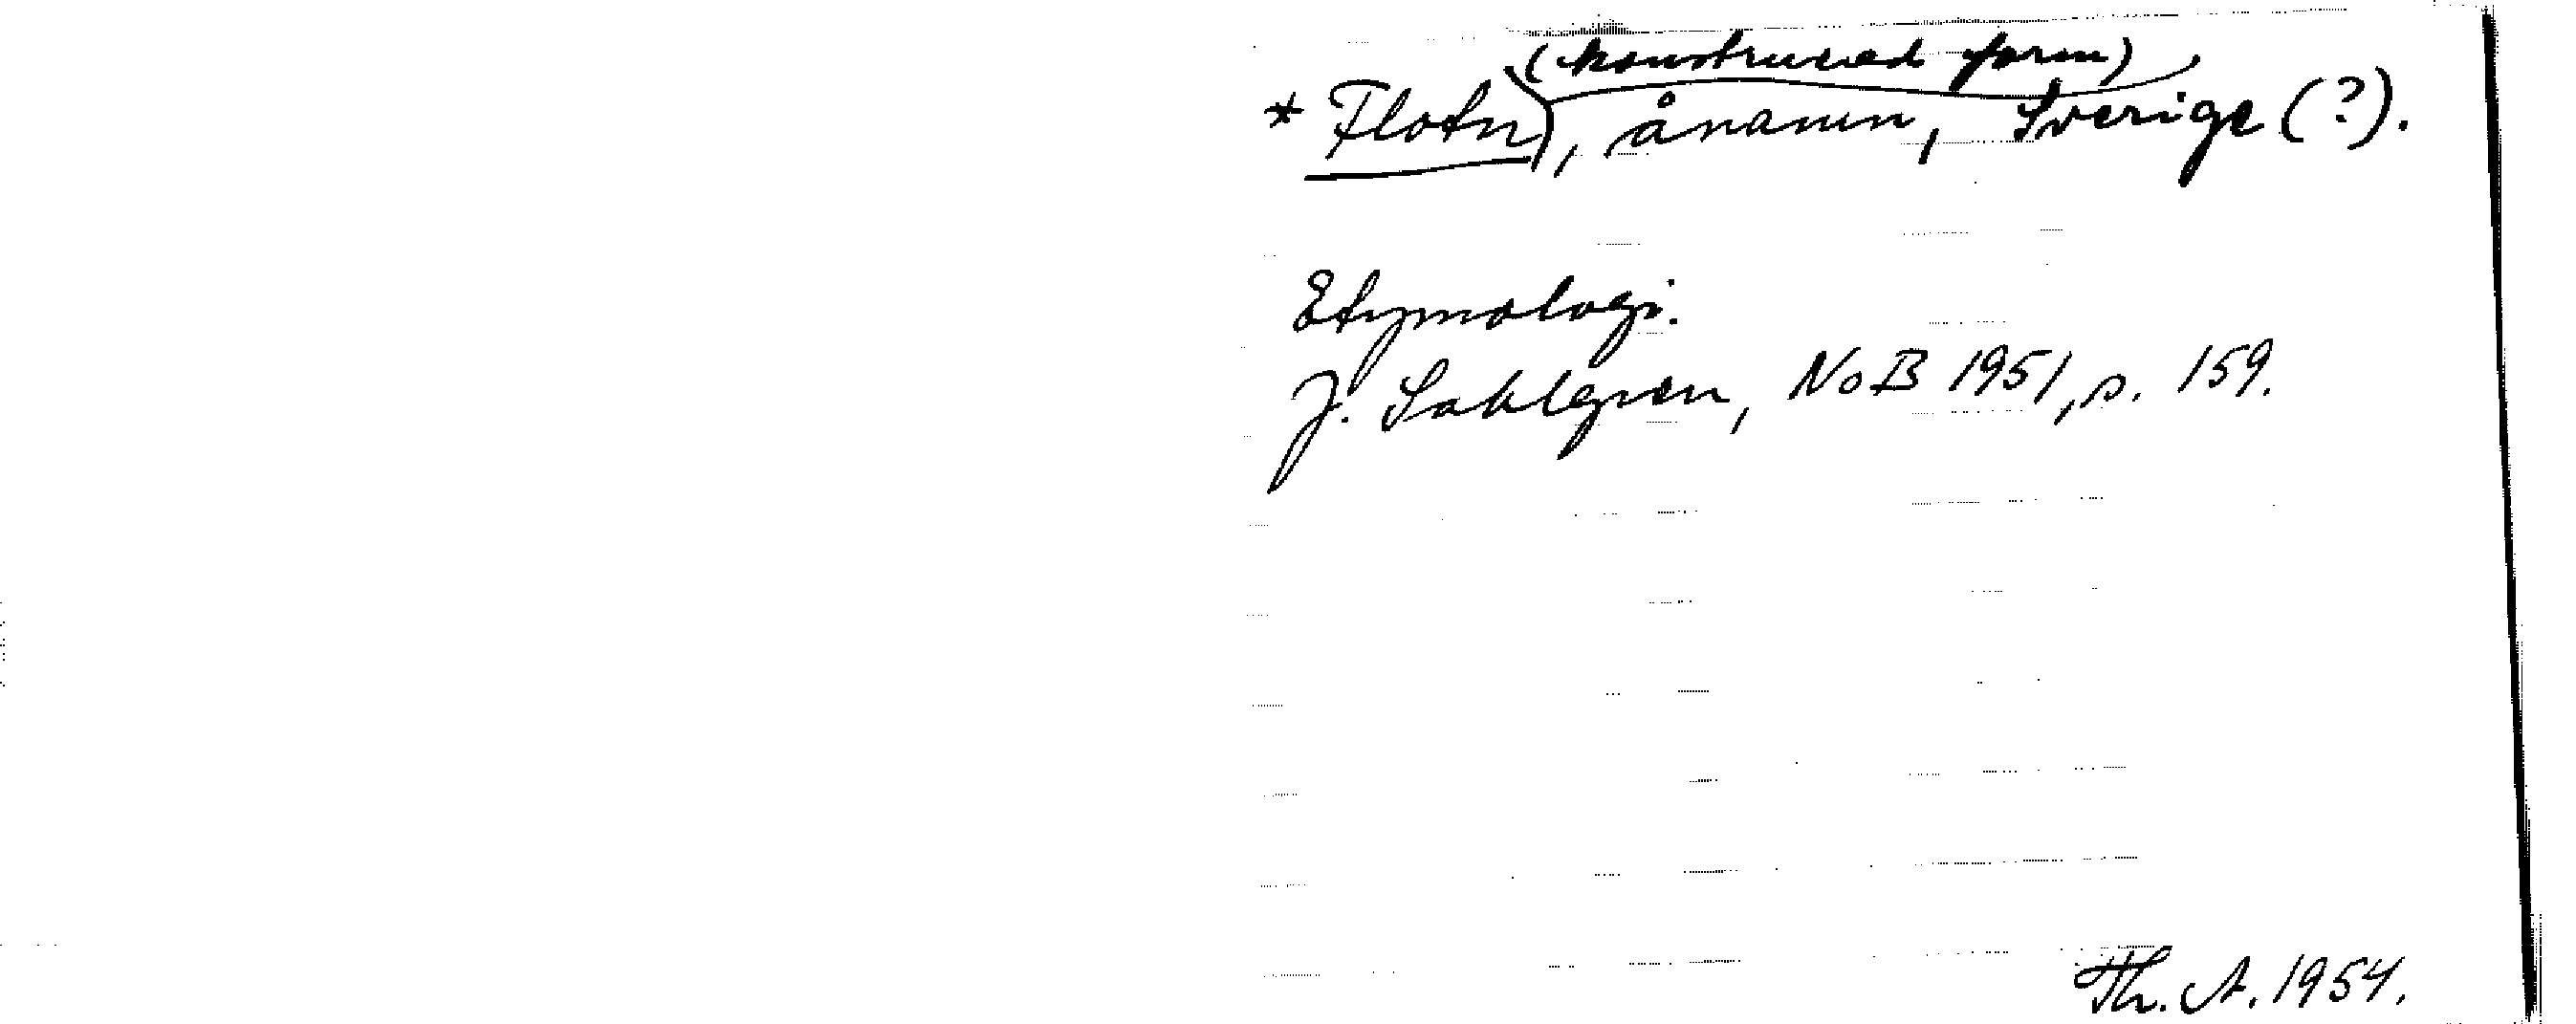 (konstruerad form)
* Flotn, ånamn, Sverige (?).
Etymologi.
J. Sahlgren, NoB 1951, s. 159.
Th. A. 1954.